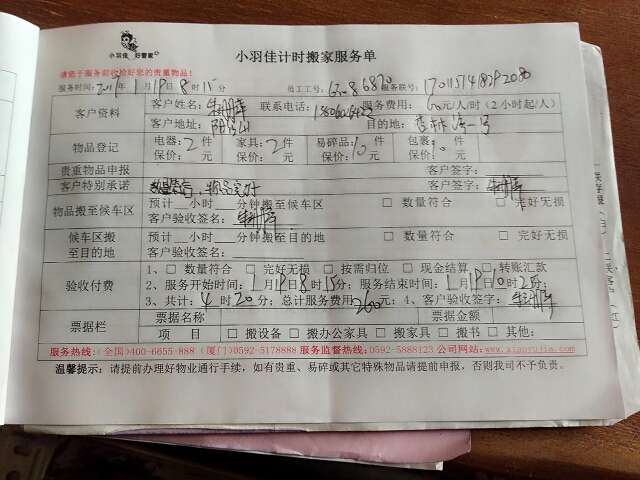 小羽佳 好管家
小羽佳计时搬家服务单
请您于服务前收拾好您的贵重物品!
服务时间: 2017年1月19日8时15分 员工工号: 服务联号:
客户资料 客户姓名: 联系电话: 服务费用: 60元/人/时(2小时起/人)
客户地址: 目的地:
物品登记 电器: 2件 家具: 2件 易碎品: 10件 包裹: 10件
保价: 元 保价: 元 保价: 元 保价: 元
贵重物品申报 客户签字:
客户特别承诺 客户签字:
物品搬至候车区 预计 小时 分钟搬至候车区 □ 数量符合 □ 完好无损
客户验收签名:
候车区搬至目的地 预计 小时 分钟搬至目的地 □ 数量符合 □ 完好无损
客户验收签名:
验收付费 1、□ 数量符合 □ 完好无损 □ 按需归位 □ 现金结算 □ 转账汇款
2、服务开始时间: 1月19日8时15分; 服务结束时间: 1月19日10时25分;
3、共计: 4时20分; 总计服务费用260元; 4、客户验收签字:
票据栏 票据名称 票据金额
项 目 □ 搬设备 □ 搬办公家具 □ 搬家具 □ 搬书 □ 其他:
服务热线:(全国)400-6655-888 (厦门)0592-5178888 服务监督热线:0592-5888123 公司网站:www.xiaoyujia.com
温馨提示: 请提前办理好物业通行手续, 如有贵重、易碎或其它特殊物品请提前申报, 否则我司不予负责。